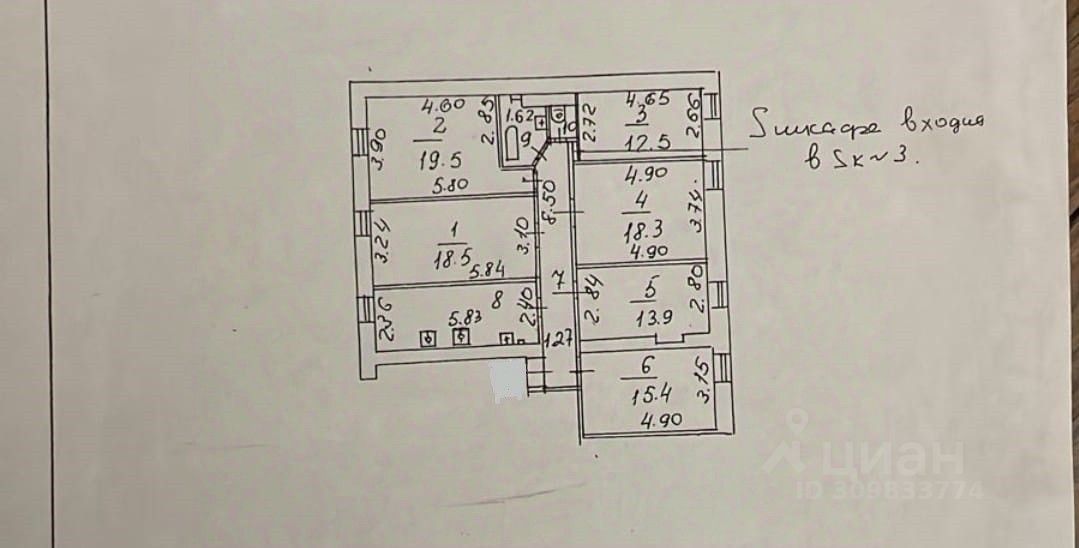 4.60
2
19.5
5.80
3.90
2.85
1.62
9
10
2.72
4.65
3
12.5
2.66
Sшкафа входит
в Sк~3.
3.24
1
18.5
5.84
3.10
8.50
4.90
4
18.3
4.90
3.74
2.36
8
5.83
2.40
7
1.27
2.84
5
13.9
2.80
6
15.4
4.90
3.15
циан
ID 309833774